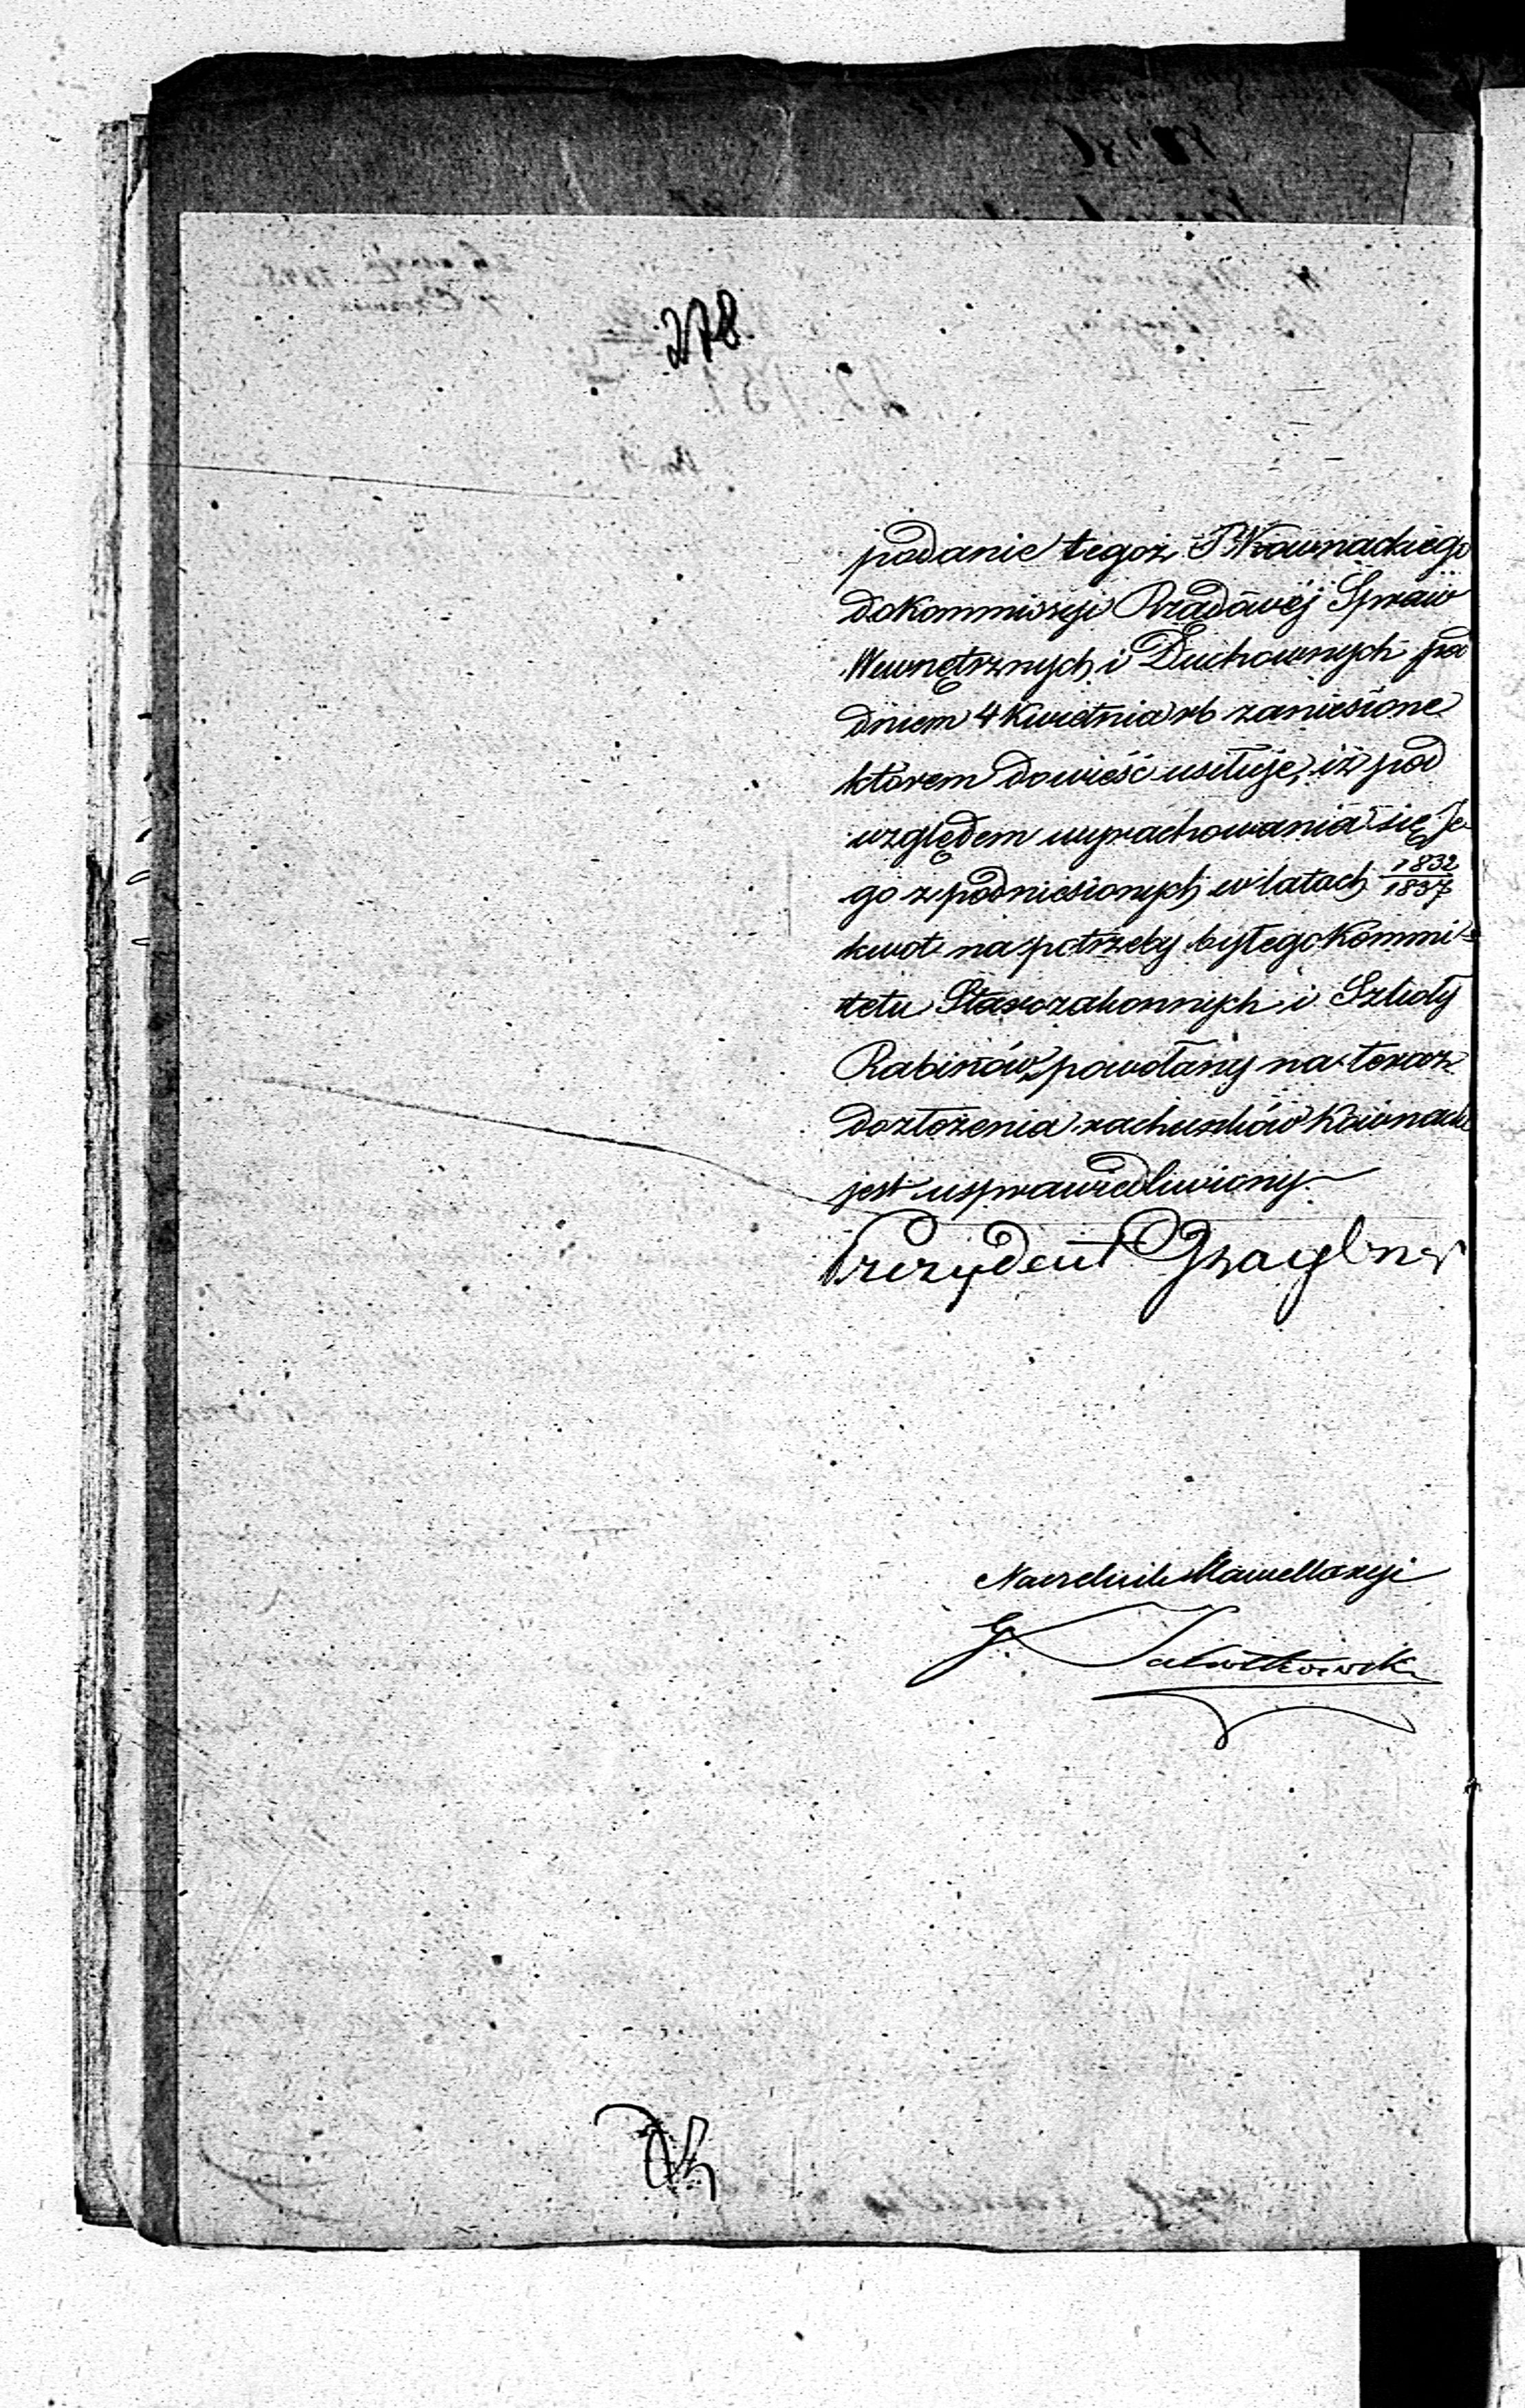 278.
podanie tegoż P Kownackiego
do Kommissyi Rządowéj Spraw
Wewnętrznych i Duchownych pod
dniem 4 Kwietnia rb zaniesione
którem dowieść usiłuje, iż pod
względem wyrachowania się Je-
go z podniesionych w latach 1832/1837
kwot na potrzeby byłego Kommi-
tetu Starozakonnych i Szkoły
Rabinów, powołany na teraz
do złożenia rachunków Kownacki
jest usprawiedliwiony.
Prezydent Graybner
Naczelnik Kancellaryi
G.